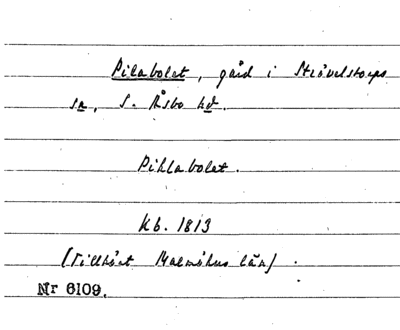 Pilabolet, gård i Strövelstorps
sn, S. Åsbo hd.
Pihlabolet.
Kb. 1813
(Tillhört Malmöhus län).
Nr 6109.